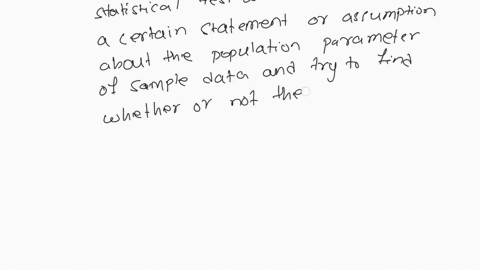 statistical test
a certain statement or assumption
about the population parameter
of sample data and try to find
whether or not the